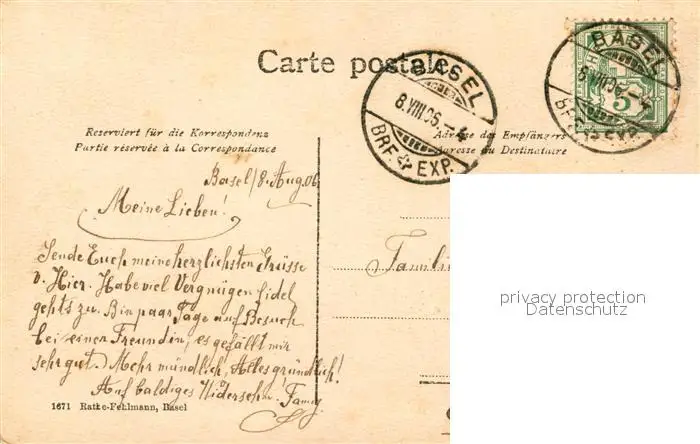 Carte postale
BASEL
8.VIII.06.–4
BRF. EXP.
BASEL
8.VIII.06.–4
BRF. EXP.
5
Reserviert für die Korrespondenz
Partie réservée à la Correspondance
Adresse des Empfängers
Adresse du Destinataire
Basel/8. Aug. 06
Meine Lieben!
Sende Euch meine herzlichsten Grüsse
v. Hier. Habe viel Vergnügen fidel
gehts zu. Bin paar Tage auf Besuch
bei einer Freundin, es gefällt mir
sehr gut. Mehr mündlich, Alles gründlich!
Auf baldiges Widersehn. Fanny
Familie
privacy protection
Datenschutz
1671 Rathe-Fehlmann, Basel